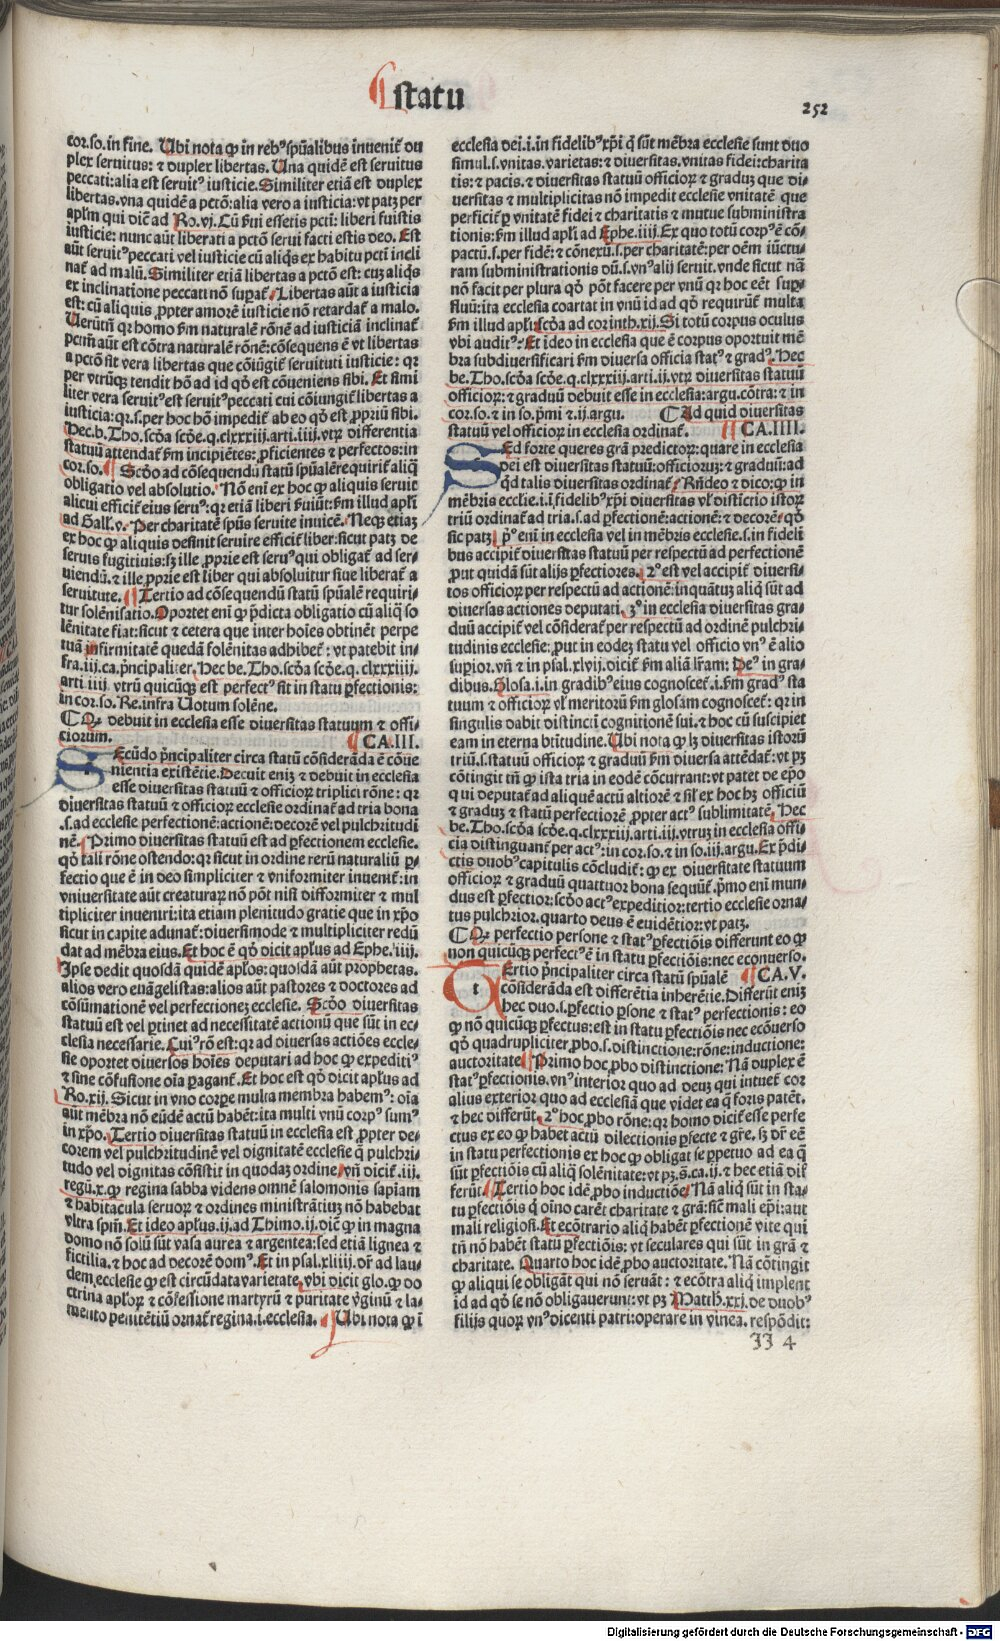 ¶ statu
252
cor.so.in fine. Ubi nota ꝙ in rebꝰ spūalibus inuenit᷑ du
plex seruitus: ⁊ duplex libertas. Una quidē est seruitus
peccati:alia est seruitꝰ iusticie. Similiter etiā est duplex
libertas.vna quidē a pctō:alia vero a iusticia:vt patꝫ per
aplm̄ qui diē ad Ro.vj. Cū ſui essetis pcti: liberi fuistis
iusticie: nunc aūt liberati a pctō serui facti estis deo. Est
aūt seruitꝰ peccati vel iusticie cū aliqs ex habitu pcti incli
nat᷑ ad malū. Similiter etiā libertas a pctō est: cuꝫ aliqs
ex inclinatione peccati nō supat᷑. Libertas aūt a iusticia
est: cū aliquis ꝓpter amorē iusticie nō retardat᷑ a malo.
Uerūtn̄ qꝛ homo ẜm naturalē rōnē ad iusticiā inclinat᷑
pctm̄ aūt est cōtra naturalē rōnē: cōsequens ē vt libertas
a pctō sit vera libertas que cōiūgit᷑ seruituti iusticie: qꝛ
per vtrūqꝫ tendit hō ad id qd̄ est cōueniens sibi. Et simi
liter vera seruitꝰ est seruitꝰ peccati cui cōiungit᷑ libertas a
iusticia: qꝛ.s.per hoc hō impedit᷑ ab eo qd̄ est ꝓpriū sibi.
Hec.b.Tho.scd̄a scd̄e.q.clxxxiij.arti.iiij.vtrꝫ differentia
statuū attendat᷑ ẜm incipiētes: ꝓficientes ⁊ perfectos: in
cor.so. ¶ Scd̄o ad cōsequendū statū spūalē requirit᷑ aliq̄
obligatio vel absolutio. Nō eni ex hoc ꝙ aliquis seruit
alicui efficit᷑ eius seruꝰ: qꝛ etiā liberi ẜuiūt: ẜm illud apli
ad Gall.v. Per charitatē spūs seruite inuicē. Neqꝫ etiaꝫ
ex hoc ꝙ aliquis desinit seruire efficit᷑ liber: sicut patꝫ de
seruis fugitiuis: sꝫ ille ꝓprie est seruꝰ qui obligat᷑ ad ser-
uiendū. ⁊ ille ꝓprie est liber qui absoluitur siue liberat᷑ a
seruitute. ¶ Tertio ad cōsequendū statū spūalē requiri-
tur solēnisatio. Oportet eni ꝙ p̄dicta obligatio cū aliq̄ so
lēnitate fiat: sicut ⁊ cetera que inter hoīes obtinēt perpe
tuā infirmitatē quedā solēnitas adhibet᷑: vt patebit in-
fra.iii.ca.p̄ncipaliter. Hec be.Tho.scd̄a scd̄e.q.clxxxiiij.
arti.iiij. vtrū quicūqꝫ est perfectꝰ sit in statu ꝑfectionis:
in cor.so. Re.infra Uotum solēne.
¶ Qꝫ debuit in ecclesia esse diuersitas statuum ⁊ offi-
ciorum. ¶ CA.III.
Ecūdo p̄ncipaliter circa statū cōsiderāda ē cōue
nientia existētie. Decuit eniꝫ ⁊ debuit in ecclesia
esse diuersitas statuū ⁊ officioꝝ triplici rōne: qꝛ
diuersitas statuū ⁊ officioꝝ ecclesie ordinat᷑ ad tria bona
.s.ad ecclesie perfectionē: actionē: decorē vel pulchritudi
nē. Primo diuersitas statuū est ad ꝑfectionem ecclesie.
qd̄ tali rōne ostendo: qꝛ sicut in ordine rerū naturaliū ꝑ-
fectio que ē in deo simpliciter ⁊ vniformiter inuenit᷑: in
vniuersitate aūt creaturaꝝ nō pōt nisi difformiter ⁊ mul
tipliciter inueniri: ita etiam plenitudo gratie que in xp̄o
sicut in capite adunat᷑: diuersimode ⁊ multipliciter redū
dat ad mēbra eius. Et hoc ē qd̄ dicit aplus ad Ephe.iiij.
Ipse dedit quosdā quidē aplos: quosdā aūt prophetas.
alios vero euāgelistas: alios aūt pastores ⁊ doctores ad
cōsūmationē vel perfectioneꝫ ecclesie. Scd̄o diuersitas
statuū est vel ꝑtinet ad necessitatē actionū que sūt in ec-
clesia necessarie. Cuiꝰ rō est: qꝛ ad diuersas actiōes eccle-
sie oportet diuersos hoies deputari ad hoc ꝙ expeditiꝰ
⁊ sine cōfusione oīa ꝑagant᷑. Et hoc est qd̄ dicit aplus ad
Ro.xij. Sicut in vno corpe multa membra habemꝰ: oīa
aūt mēbra nō eūdē actū habēt: ita multi vnū corpꝰ sumꝰ
in xp̄o. Tertio diuersitas statuū in ecclesia est ꝓpter de-
corem vel pulchritudinē vel dignitatē ecclesie q̄ pulchri-
tudo vel dignitas cōsistit in quodaꝫ ordine. vn̄ dicit᷑.iii.
regū.x.ꝙ regina sabba videns omnē salomonis sapiam
⁊ habitacula seruoꝝ ⁊ ordines ministrātiuꝫ nō habebat
vltra spm̄. Et ideo aplus.ij.ad Thimo.ij.diē ꝙ in magna
domo nō solū sūt vasa aurea ⁊ argentea: sed etiā lignea ⁊
fictilia. ⁊ hoc ad decorē domꝰ. Et in psal.xliiij. dr̄ ad lau-
dem ecclesie ꝙ est circūdata varietate. vbi dicit glo.ꝙ do
ctrina aploꝝ ⁊ cōfessione martyrū ⁊ puritate v̄ginū ⁊ la-
mento penitētiū ornat᷑ regina.i.ecclesia. ¶ Ubi nota ꝙ i
ecclesia dei.i.in fidelibꝰ xp̄i q̄ sūt mēbra ecclesie sunt duo
simul.s.vnitas.varietas: ⁊ diuersitas.vnitas fidei: charita
tis: ⁊ pacis. ⁊ diuersitas statuū officioꝝ ⁊ graduꝫ que di-
uersitas ⁊ multiplicitas nō impedit ecclesie vnitatē que
perficit᷑ ꝑ vnitatē fidei ⁊ charitatis ⁊ mutue subministra
tionis: ẜm illud apli ad Ephe.iiij. Ex quo totū corpꝰ ē cō-
pactū.s.per fidē: ⁊ cōnexū.s.per charitatē: per oēm iūctu-
ram subministrationis dū.s.vnꝰ alij seruit. vnde sicut nā
nō facit per plura qd̄ pōt facere per vnū qꝛ hoc eēt suꝑ-
fluū: ita ecclesia coartat in vnū id ad qd̄ requirūt᷑ multa
ẜm illud apli scd̄a ad corinth.xij. Si totū corpus oculus
vbi auditꝰ: Et ideo in ecclesia que ē corpus oportuit mē
bra subdiuersificari ẜm diuersa officia statꝰ ⁊ gradꝰ. Hec
be.Tho.scd̄a scd̄e.q.clxxxiij.arti.ij.vtrꝫ diuersitas statuū
officioꝝ: ⁊ graduū debuit esse in ecclesia: argu.cōtra: ⁊ in
cor.so.⁊ in so.p̄mi ⁊ ij.argu. ¶ Ad quid diuersitas
statuū vel officioꝝ in ecclesia ordinat᷑. ¶ CA.IIII.
Ed forte queres grā predictoꝝ: quare in ecclesia
dei est diuersitas statuū: officioruꝫ: ⁊ graduū: ad
qd̄ talis diuersitas ordinat᷑. Rn̄deo ⁊ dico: ꝙ in
mēbris ecclie.i.i fidelibꝰ xp̄i diuersitas vl̓ distīctio istoꝝ
triū ordinat᷑ ad tria.s.ad ꝑfectionē: actionē: ⁊ decorē. qd̄
sic patꝫ. pꝰ eni in ecclesia vel in mēbris ecclesie.s.in fideli
bus accipit᷑ diuersitas statuū per respectū ad perfectionē
ꝓut quidā sūt alijs ꝑfectiores. 2º est vel accipit᷑ diuersi-
tas officioꝝ per respectū ad actionē: inquātuꝫ aliq̄ sūt ad
diuersas actiones deputati. 3º in ecclesia diuersitas gra-
duū accipit᷑ vel cōsiderat᷑ per respectū ad ordinē pulchri-
tudinis ecclesie: ꝓut in eodeꝫ statu vel officio vnꝰ ē alio
superior. vn̄ ⁊ in psal.xlvij. dicit᷑ ẜm aliā lr̄am: Deꝰ in gra-
dibus. Glosa.i.in gradibꝰ eius cognoscet᷑.i.ẜm gradꝰ sta
tuum ⁊ officioꝝ vl̓ meritorū ẜm glosam cognoscet᷑: qꝛ in
singulis dabit distinctā cognitionē sui. ⁊ hoc cū suscipiet
eam in eterna btītudine. Ubi nota ꝙ lꝫ diuersitas istorū
triū.s.statuū officioꝝ ⁊ graduū ẜm diuersa attēdat᷑: vt pꝫ
cōtingit tn̄ ꝙ ista tria in eodē cōcurrant: vt patet de ep̄o
qui deputat᷑ ad aliquē actū altiorē ⁊ sil̓ ex hoc hꝫ officiū
⁊ graduꝫ ⁊ statū perfectiorē ꝓpter actꝰ sublimitatē. Hec
be.Tho.scd̄a scd̄e.q.clxxxiij.arti.iij.vtruꝫ in ecclesia offi-
cia distinguant᷑ per actꝰ: in cor.so.⁊ in so.iij.argu. Ex p̄di-
ctis duobꝰ capitulis cōcludit᷑: ꝙ ex diuersitate statuum
officioꝝ ⁊ graduū quattuor bona sequūt᷑. p̄mo eni mun-
dus est ꝑfectior: scd̄o actꝰ expeditior: tertio ecclesie orna-
tus pulchrior. quarto deus ē euidētior: vt patꝫ.
¶ Qꝫ perfectio persone ⁊ statꝰ ꝑfectiōis differunt eo ꝙ
non quicūqꝫ perfectꝰ ē in statu ꝑfectiōis: nec econuerso.
Ertio p̄ncipaliter circa statū spūalē ¶ CA.V.
cōsiderāda est differētia inherētie. Differūt eniꝫ
hec duo.s.ꝑfectio ꝑsone ⁊ statꝰ perfectionis: eo
ꝙ nō quicūqꝫ ꝑfectus: est in statu ꝑfectiōis nec ecōuerso
qd̄ quadrupliciter ꝓbo.s.distinctione: rōne: inductione:
auctoritate. ¶ Primo hoc ꝓbo distinctione: Nā duplex ē
statꝰ ꝑfectionis. vnꝰ interior quo ad deuꝫ qui intuet᷑ cor
alius exterior quo ad ecclesiā que videt ea q̄ foris patēt.
⁊ hec differūt. 2º hoc ꝓbo rōne: qꝛ homo dicit᷑ esse perfe
ctus ex eo ꝙ habet actū dilectionis ꝑfecte ⁊ gr̄e. sꝫ dr̄ eē
in statu perfectionis ex hoc ꝙ obligat se ꝑpetuo ad ea q̄
sūt ꝑfectiōis cū aliq̄ solēnitate: vt pꝫ.s.ca.ij. ⁊ hec etiā dif
ferūt. ¶ Tertio hoc idē ꝓbo inductiōe. Nā aliq̄ sūt in sta-
tu ꝑfectiōis q̄ oīno carēt charitate ⁊ grā: sic̄ mali ep̄i: aut
mali religiosi. Et ecōtrario aliq̄ habēt ꝑfectionē vite qui
tn̄ nō habēt statū ꝑfectiōis: vt seculares qui sūt in grā ⁊
charitate. Quarto hoc idē ꝓbo auctoritate. Nā cōtingit
ꝙ aliqui se obligāt qui nō seruāt: ⁊ ecōtra aliq̄ implent
id ad qd̄ se nō obligauerunt: vt pꝫ Matth.xxj.de duobꝰ
filijs quoꝝ vnꝰ dicenti patri: operare in vinea. respōdit:
II 4
Digitalisierung gefördert durch die Deutsche Forschungsgemeinschaft - DFG